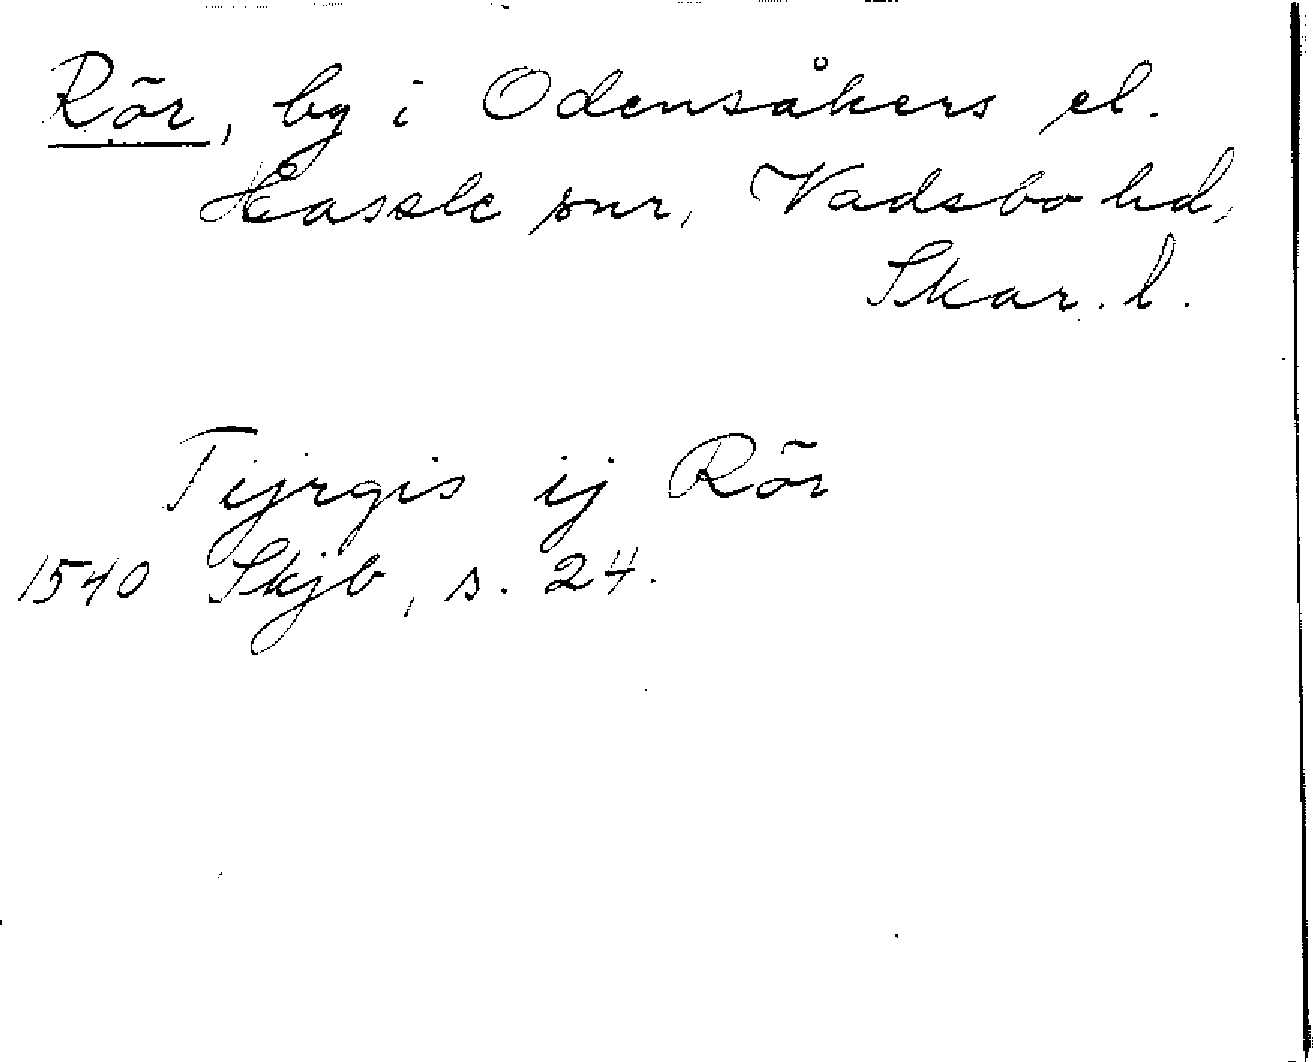 Rör, by i Odensåkers el.
Hassle snr, Vadsbo hd,
Skar. l.
Tijrgis ij Rör
1540 Skjb, s. 24.